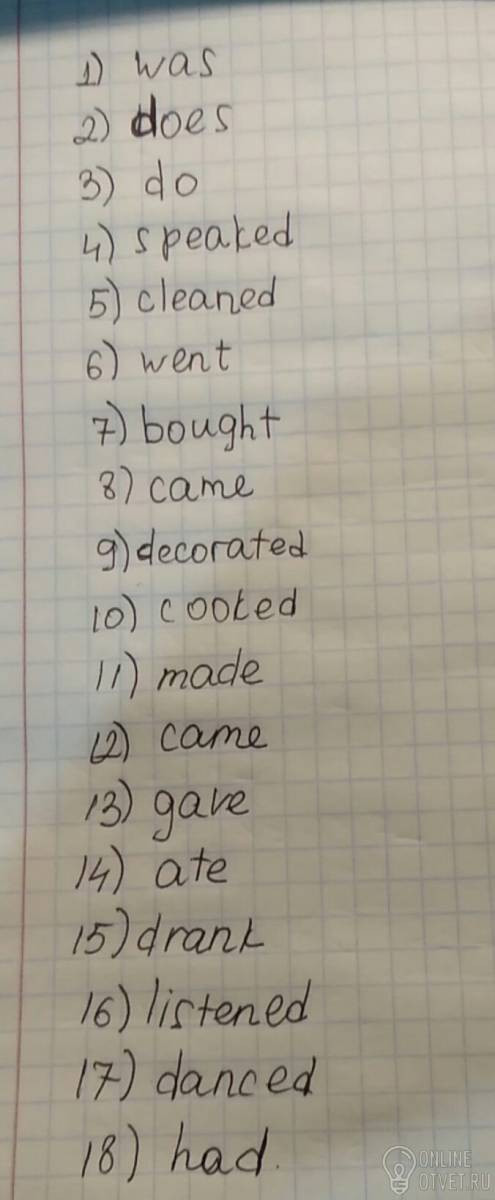 1) was
2) does
3) do
4) speaked
5) cleaned
6) went
7) bought
8) came
9) decorated
10) cooked
11) made
12) came
13) gave
14) ate
15) drank
16) listened
17) danced
18) had.
ONLINE
OTVET.RU